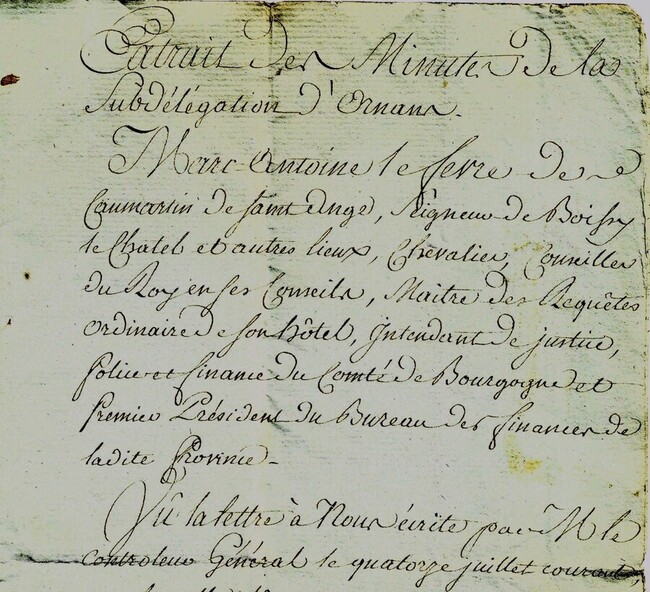 Extrait des Minutes de la
Subdélégation d'Ornans.
Marc Antoine le fevre de
Caumartin de saint Ange, Seigneur de Boissy
le Chatel et autres lieux, Chevalier, Conseiller
du Roy en ses Conseils, Maitre des Requêtes
ordinaire de son hôtel, Intendant de justice,
police et finance du Comté de Bourgogne et
premier Président du Bureau des finances de
ladite Province.
Vû la lettre à Nous écrite par M le
controleur Général le quatorze juillet courant,